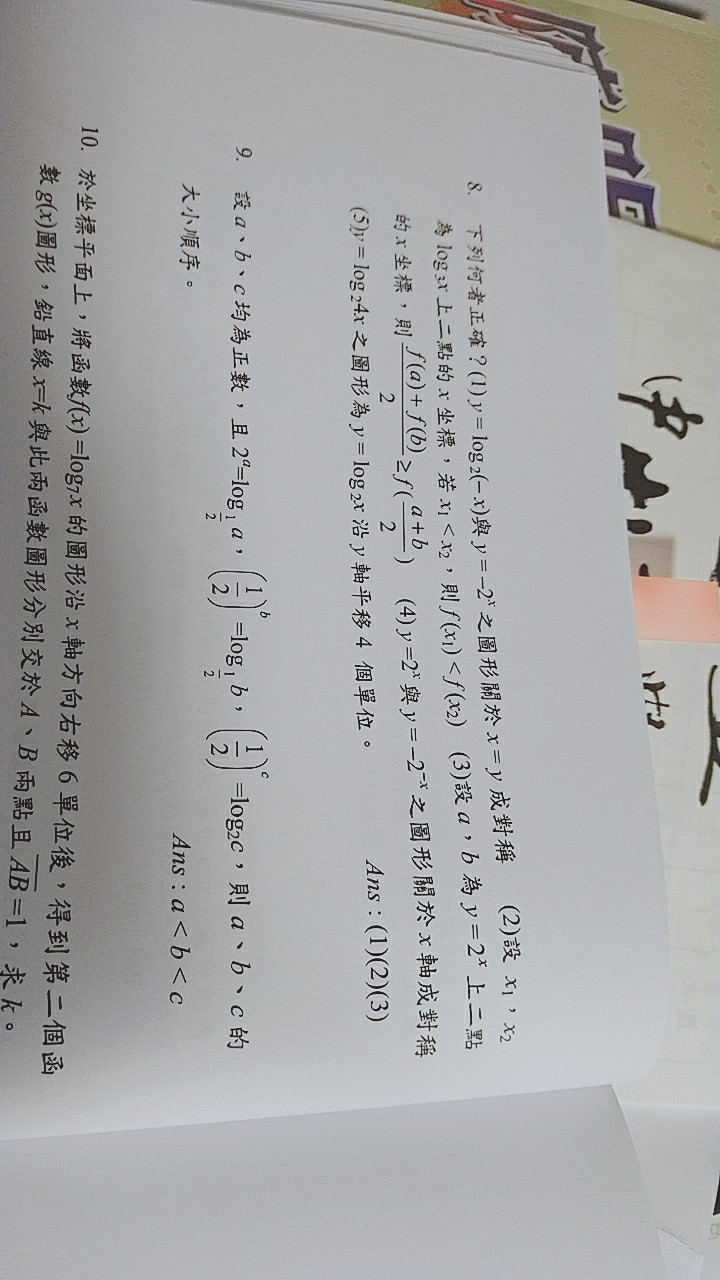 8. 下列何者正確？(1) y = log₂(−x)與 y = −2ˣ 之圖形關於 x = y 成對稱 (2)設 x₁，x₂
為 log₃x 上二點的 x 坐標，若 x₁ < x₂，則 f(x₁) < f(x₂) (3)設 a，b 為 y = 2ˣ 上二點
的 x 坐標，則 \frac{f(a)+f(b)}{2} ≥ f(\frac{a+b}{2}) (4) y = 2ˣ 與 y = −2⁻ˣ 之圖形關於 x 軸成對稱
(5)y = log₂4x 之圖形為 y = log₂x 沿 y 軸平移 4 個單位。
Ans : (1)(2)(3)
9. 設 a、b、c 均為正數，且 2ᵃ=log_{\frac{1}{2}} a，(\frac{1}{2})ᵇ=log_{\frac{1}{2}} b，(\frac{1}{2})ᶜ=log₂c，則 a、b、c 的
大小順序。
Ans : a < b < c
10. 於坐標平面上，將函數f(x)=log₇x 的圖形沿 x 軸方向右移 6 單位後，得到第二個函
數 g(x)圖形，鉛直線 x=k 與此兩函數圖形分別交於 A、B 兩點且 \overline{AB}=1，求 k。